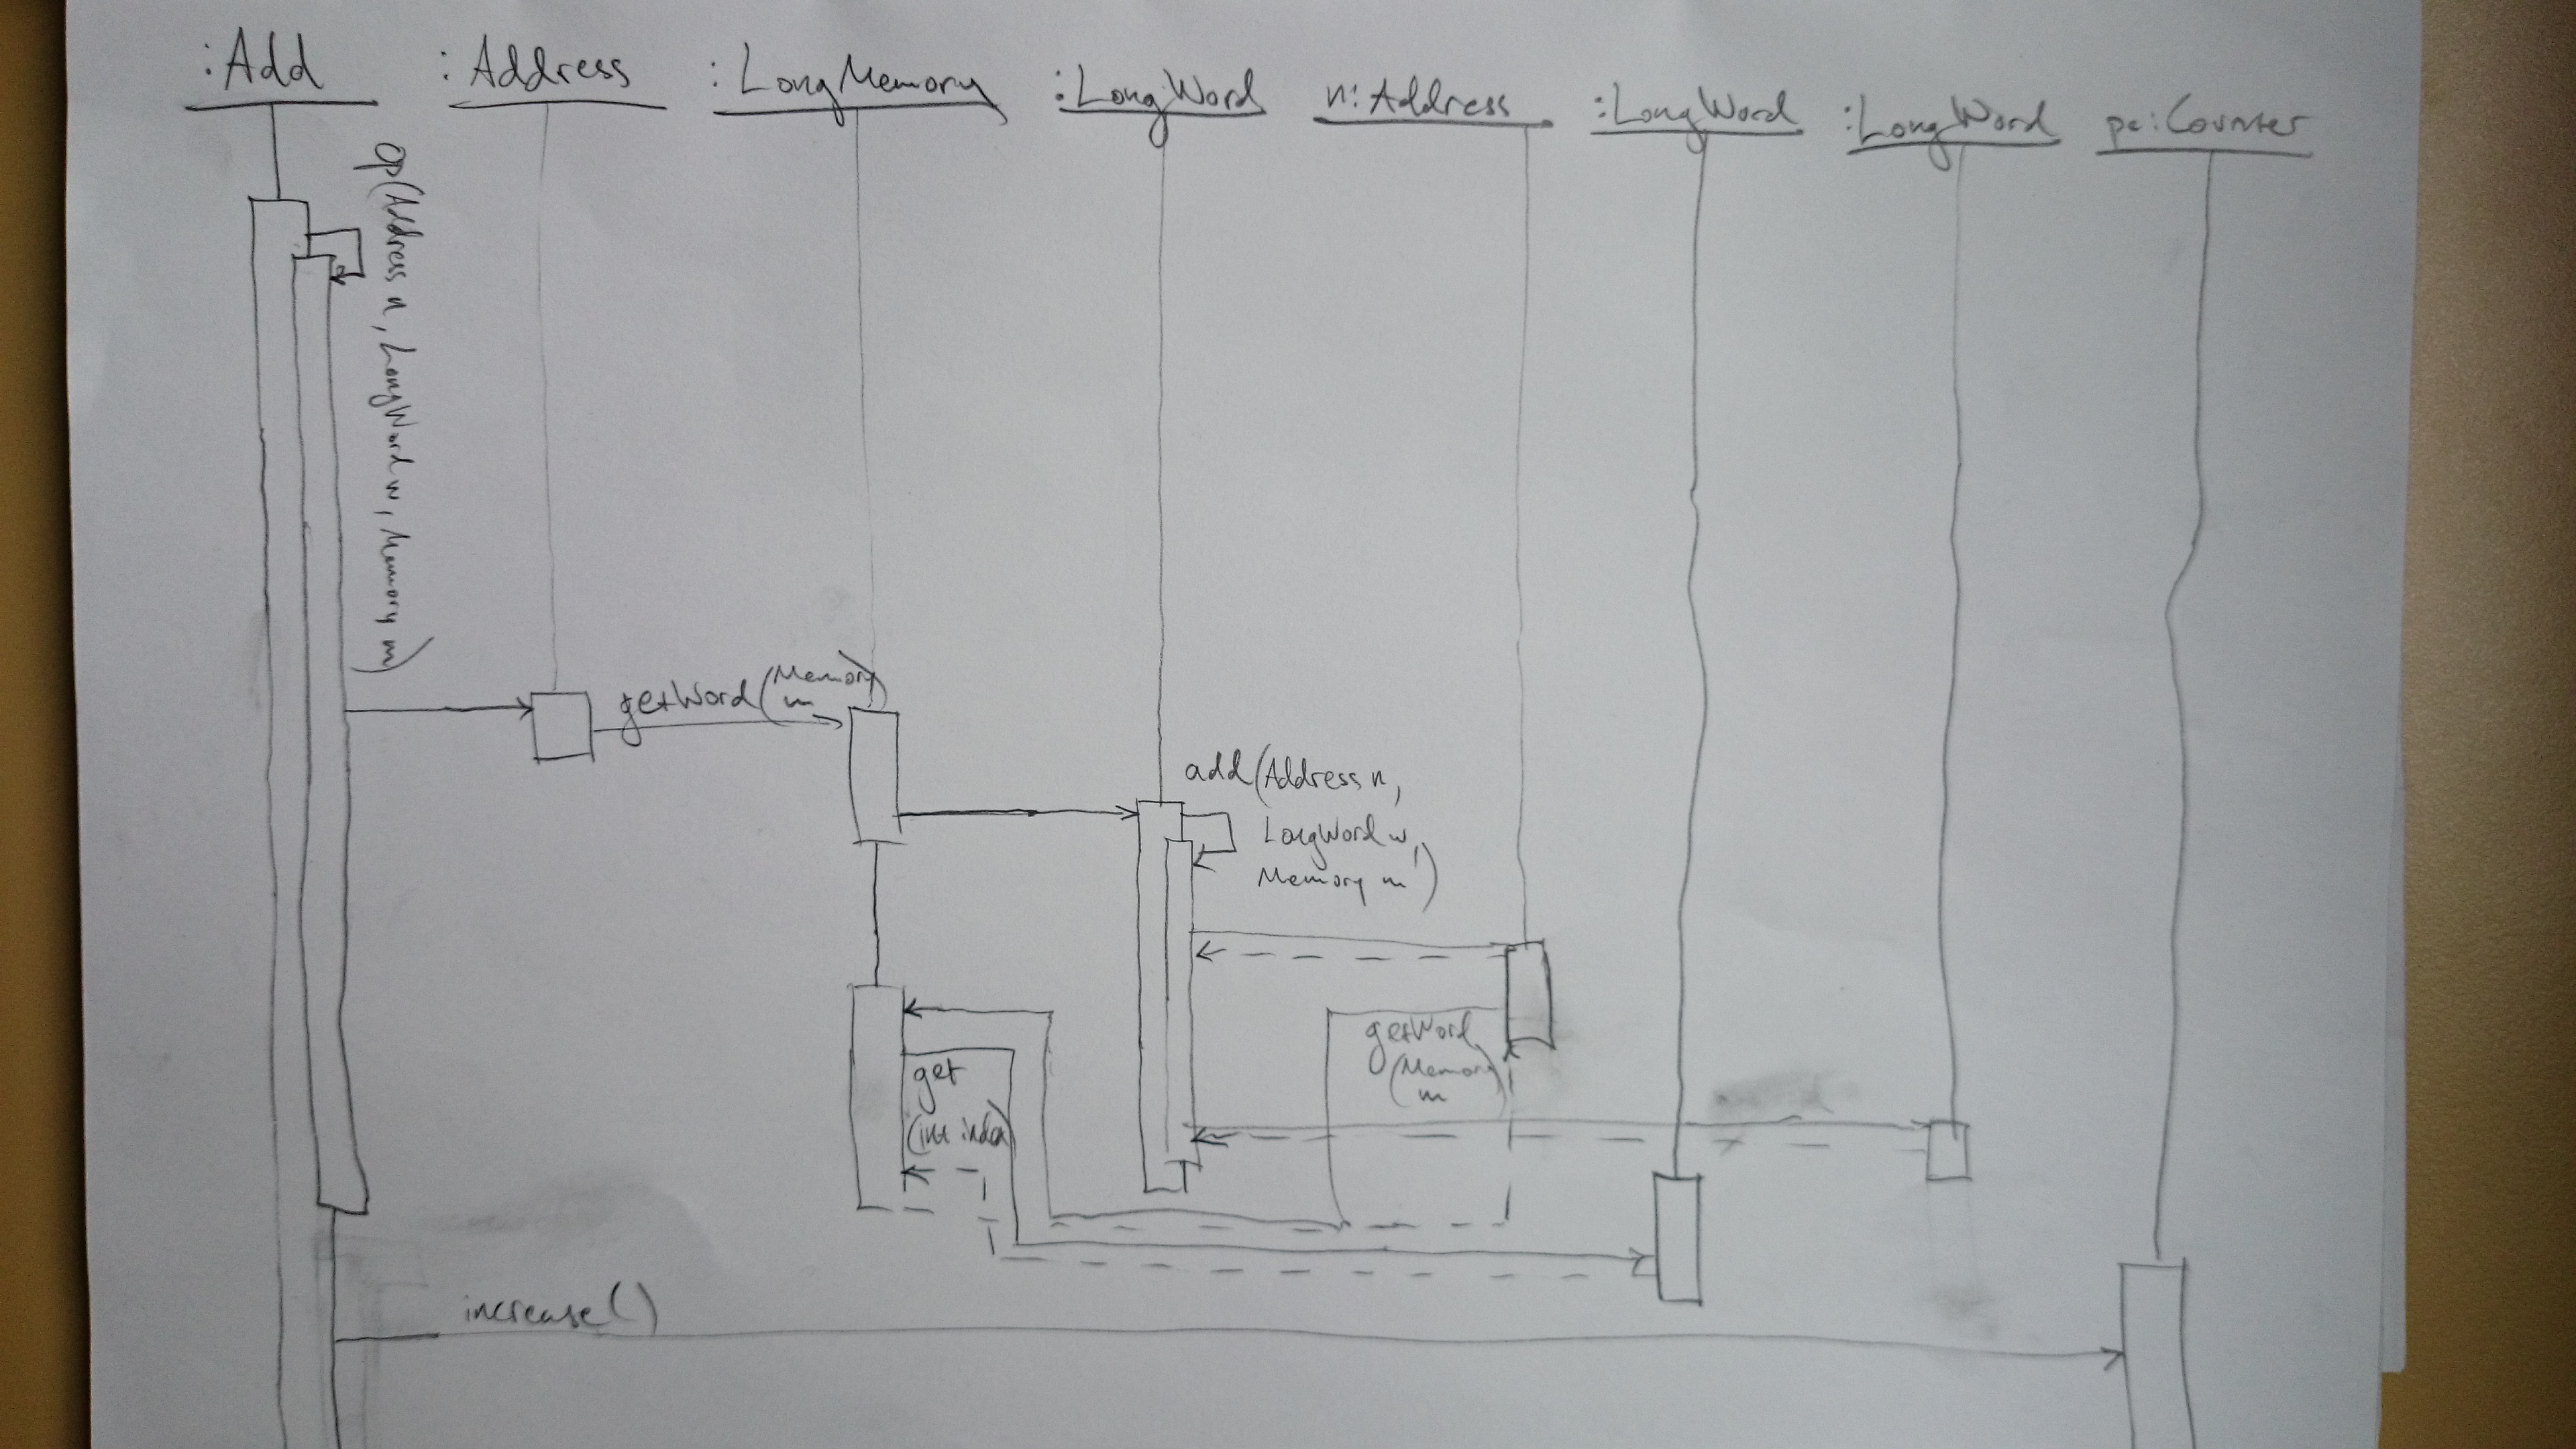 :Add
:Address
:LongMemory
:LongWord
n:Address
:LongWord
:LongWord
pc:Counter
op(Address n, LongWord w, Memory m)
getWord(Memory
m)
add(Address n,
LongWord w,
Memory m)
getWord
(Memory
m)
get
(int index)
increase()